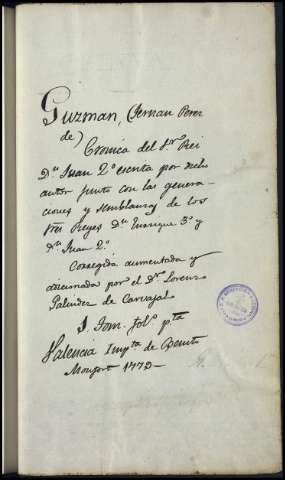 Guzman, (Fernan Perez
de)
Cronica del Sr. Rei
Dn. Juan 2º escrita por dicho
autor junto con las genera-
ciones y semblanzas de los
Sres Reyes Dn. Enrique 3º y
Dn. Juan 2º
Corregida aumentada y
adicionada por el Dr. Lorenzo
Galindez de Carvajal
1. Tom. folº pta
Valencia Impta de Benito
Monfort 1779